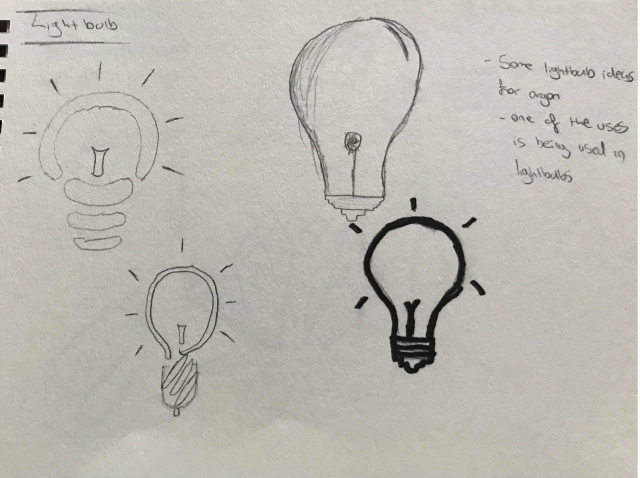 Lightbulb
- Some lightbulb ideas
for argon
- one of the uses
is being used in
lightbulbs